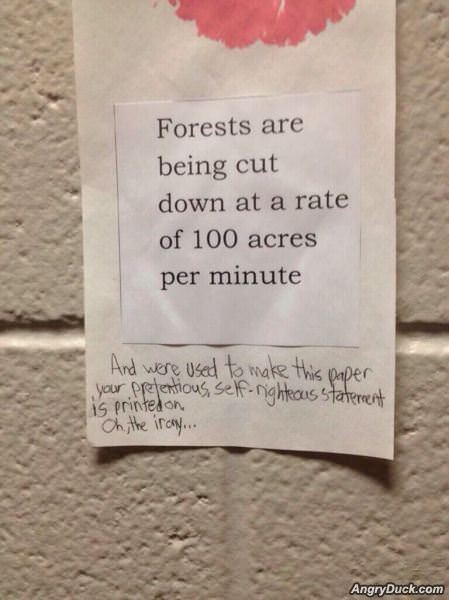 Forests are
being cut
down at a rate
of 100 acres
per minute
And were used to make this paper
your pretentious, self-righteous statement
is printed on.
Oh, the irony...
AngryDuck.com